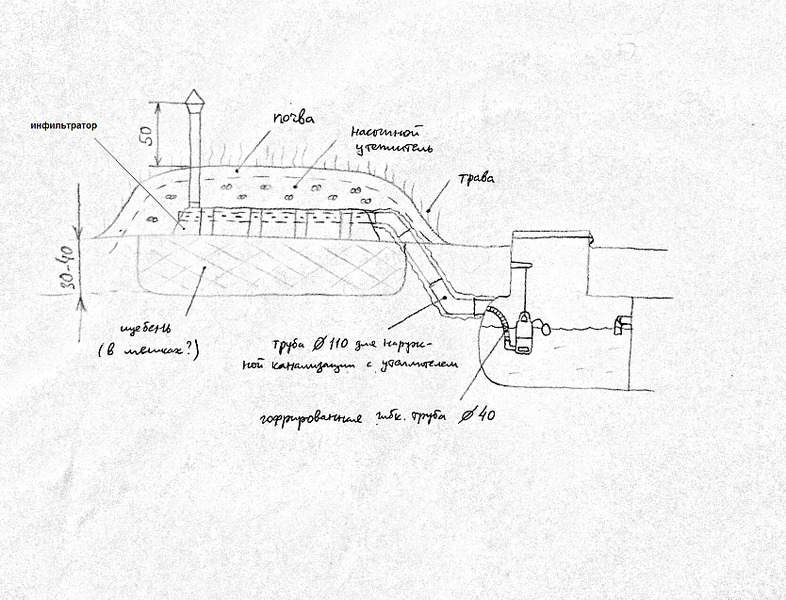 инфильтратор
50
почва
насыпной
утеплитель
трава
30-40
щебень
(в мешках?)
труба Ø 110 для наруж-
ной канализации с утеплителем
гофрированная гибк. труба Ø 40